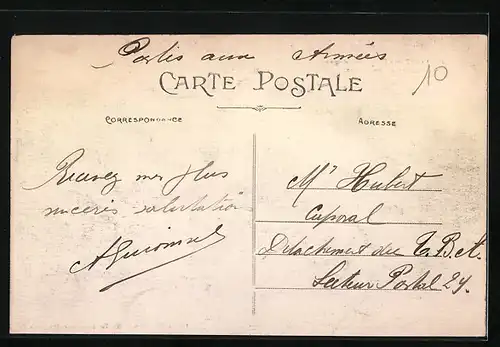 Postes aux Armées
10
CARTE POSTALE
CORRESPONDANCE
ADRESSE
Recevez mes plus
sincères salutations
Mr Hubert
Caporal
Détachement du C.B.A.
Secteur Postal 24.